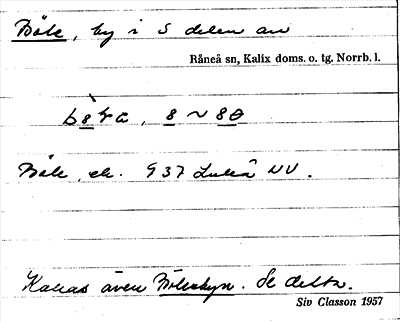 Böle, by i S delen av
Råneå sn, Kalix doms. o. tg. Norrb. l.
Böle, ek. 937 Luleå NV.
Kallas även Bölesbyn. Se detta.
Siv Classon 1957